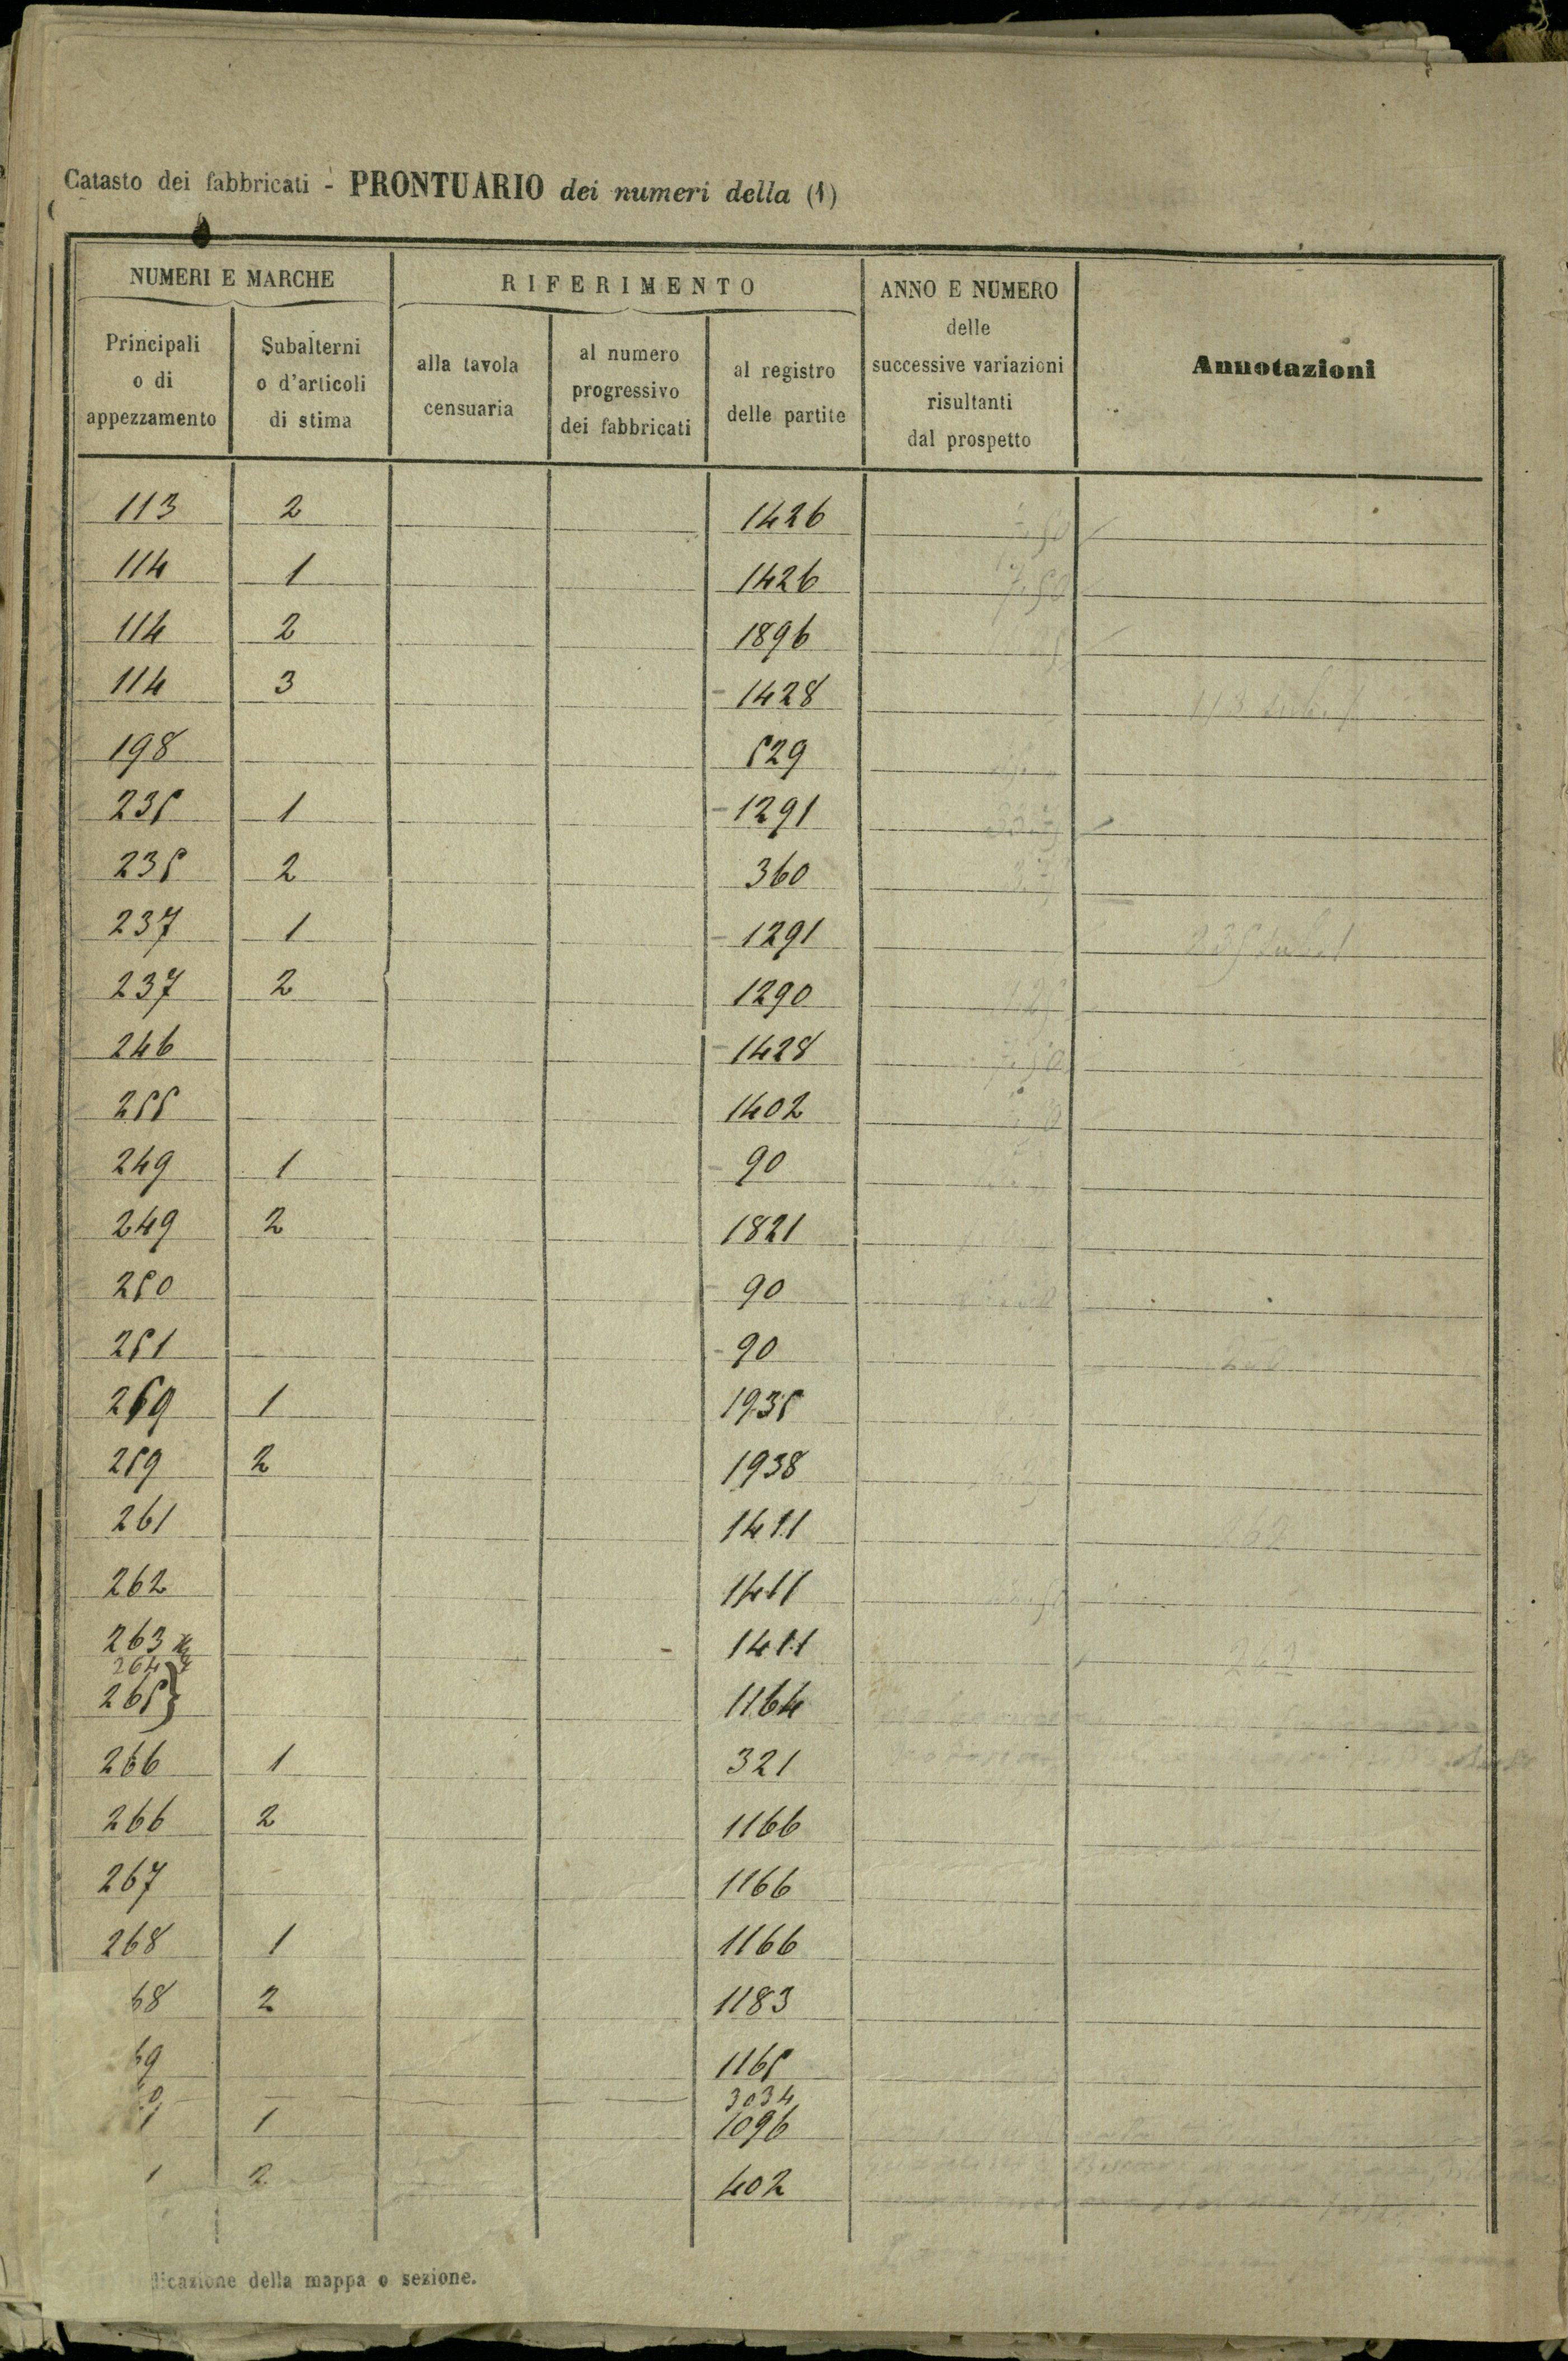 Catasto dei fabbricati - PRONTUARIO dei numeri della (1)
NUMERI E MARCHE
RIFERIMENTO
ANNO E NUMERO
delle
successive variazioni
risultanti
dal prospetto
Annotazioni
Principali
o di
appezzamento
Subalterni
o d'articoli
di stima
alla tavola
censuaria
al numero
progressivo
dei fabbricati
al registro
delle partite
113 2 1426
114 1 1426 7.50
114 2 1896
114 3 1428 113 sub. 1
198 529
235 1 1291
235 2 360
237 1 1291 235 sub. 1
237 2 1290
246 1428 7.50
255 1402
249 1 90
249 2 1821
250 90
251 90 250
259 1 1935
259 2 1938
261 1411 262
262 1411
263 1411 262
264
265 1164
266 1 321
266 2 1166
267 1166
268 1 1166
68 2 1183
69 1165
3034
1 1 1096
1 2 402
dicazione della mappa o sezione.